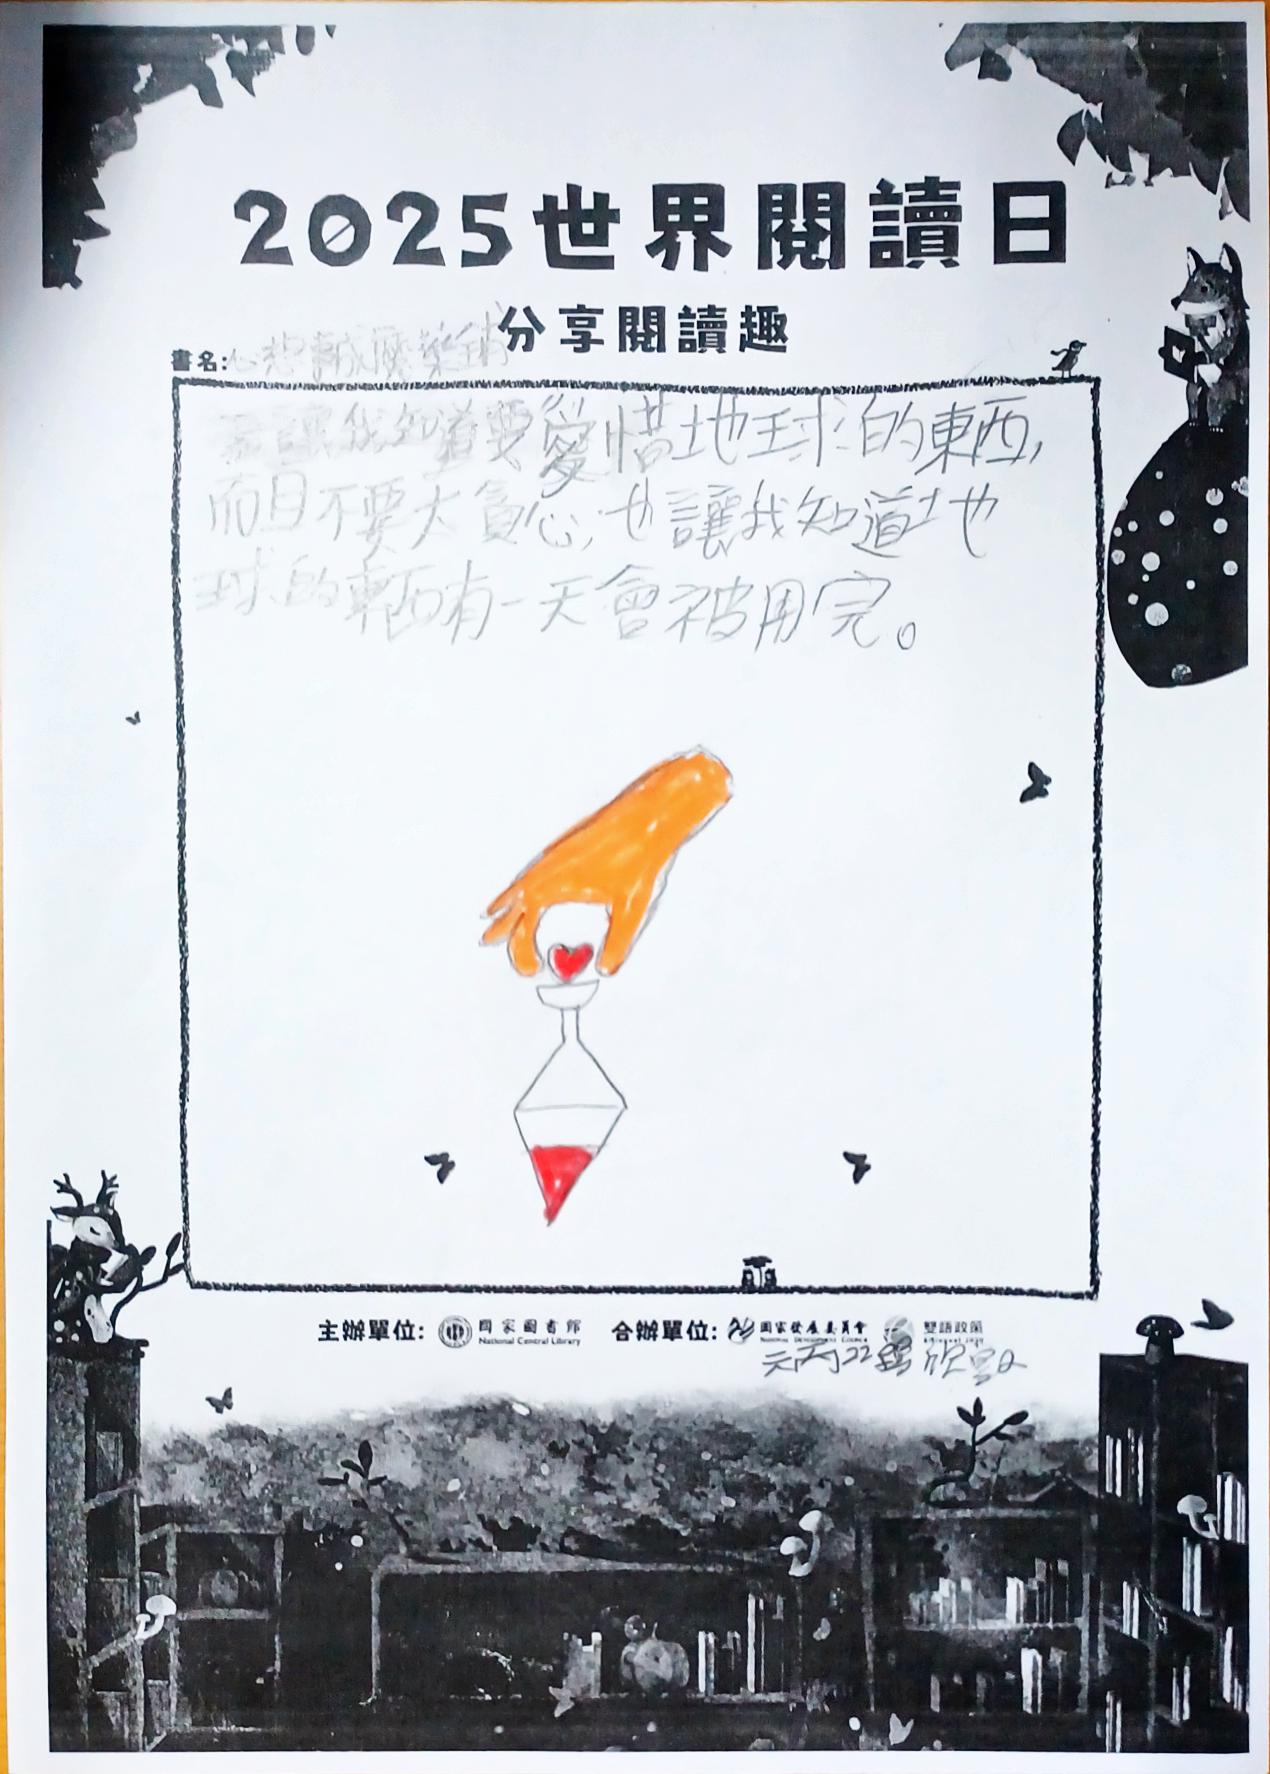 2025世界閱讀日
分享閱讀趣
書名:心想事成魔藥鋪
讓我知道要愛惜地球的東西,
而且不要太貪心,也讓我知道地
球的東西有一天會被用完。
主辦單位: 國家圖書館 合辦單位: 國家發展委員會 雙語政策
National Central Library NATIONAL DEVELOPMENT COUNCIL
元丙22號